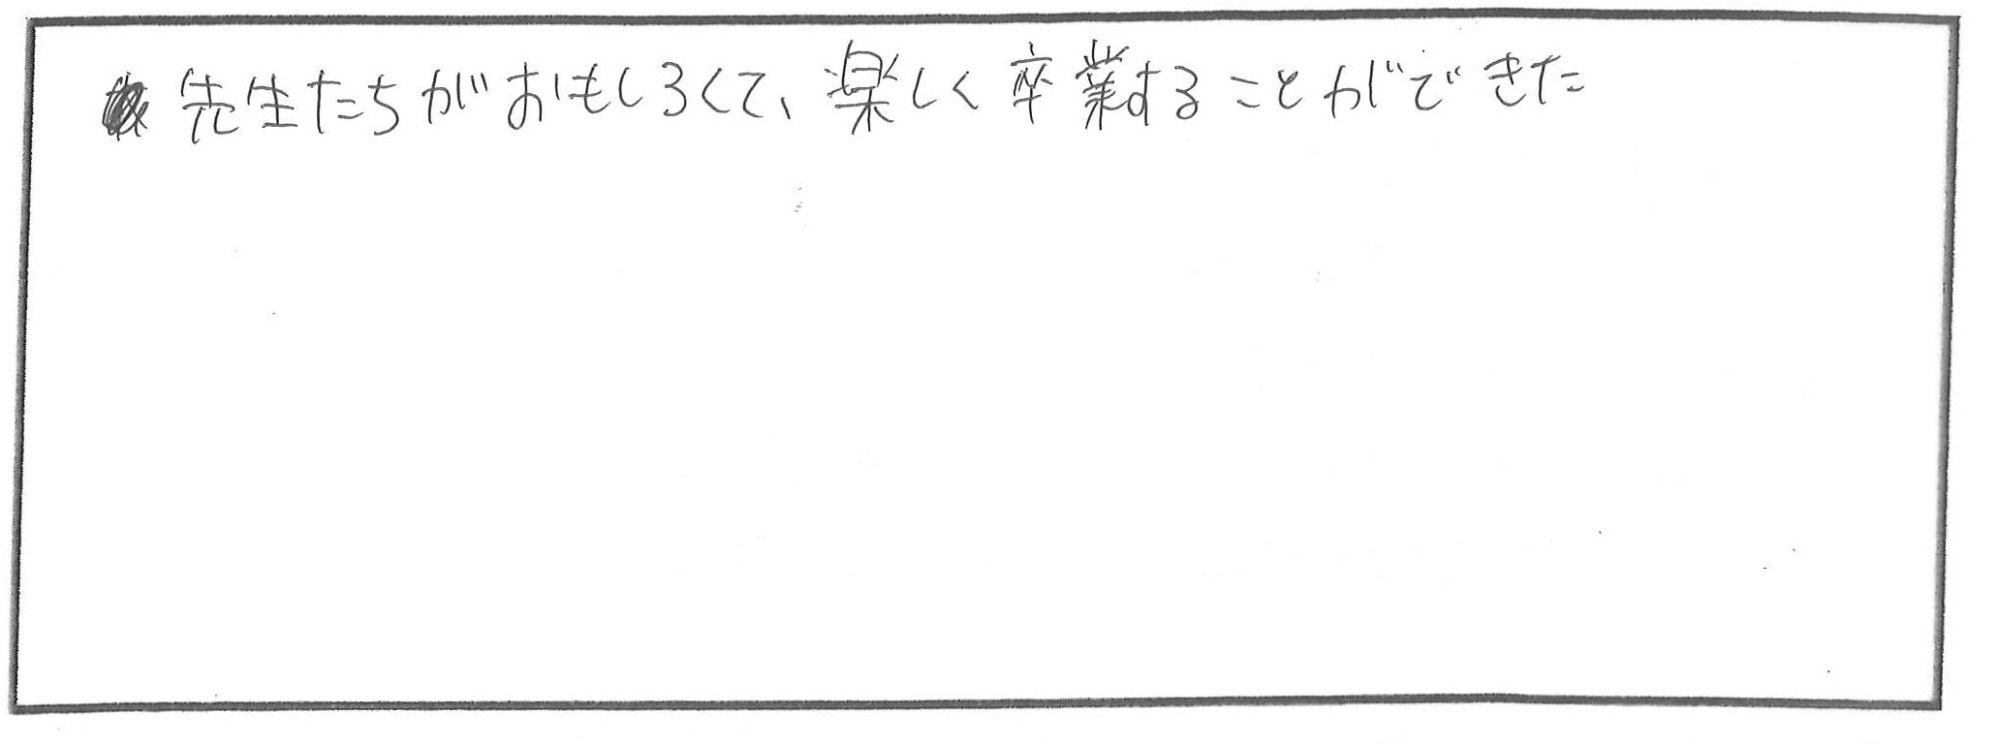 先生たちがおもしろくて、楽しく卒業することができた